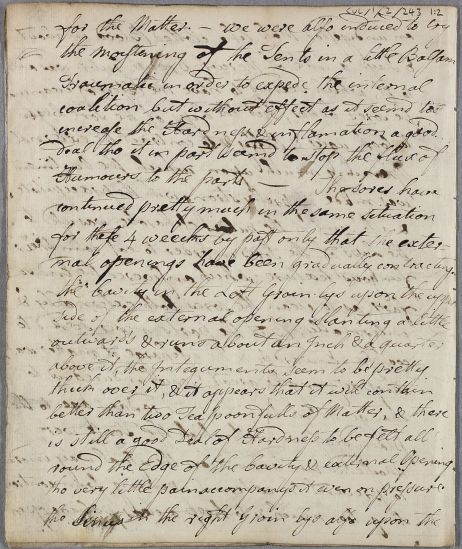 CUL/1/2/243 1:2
for the Matter. – we were also induced to try
the moistening of the Tents in a little Balsam
Traumatic in order to expede the internal
coalition but without effect as it seemd to
increase the Hardness & inflamation a good
deal tho it in part seemd to stop the flux of
Humours to the parts — The Sores have
continued pretty much in the same situation
for these 4 weecks by past only that the exter-
nal openings have been gradually contracting.
The Cavity in the Left Groin lys upon the upper
side of the external opening slanting a little
outwards & runs about an Inch & a quarter
above it, the Integuments seem to be pretty
thick over it, & it appears that it will contain
better than two Teaspoonfulls of Matter, & there
is still a good Deal of Hardness to be felt all
round the Edge of the Cavity & external Opening
tho very little pain accompanys it even on pressure
the Sinus in the right Groin lys also upon the